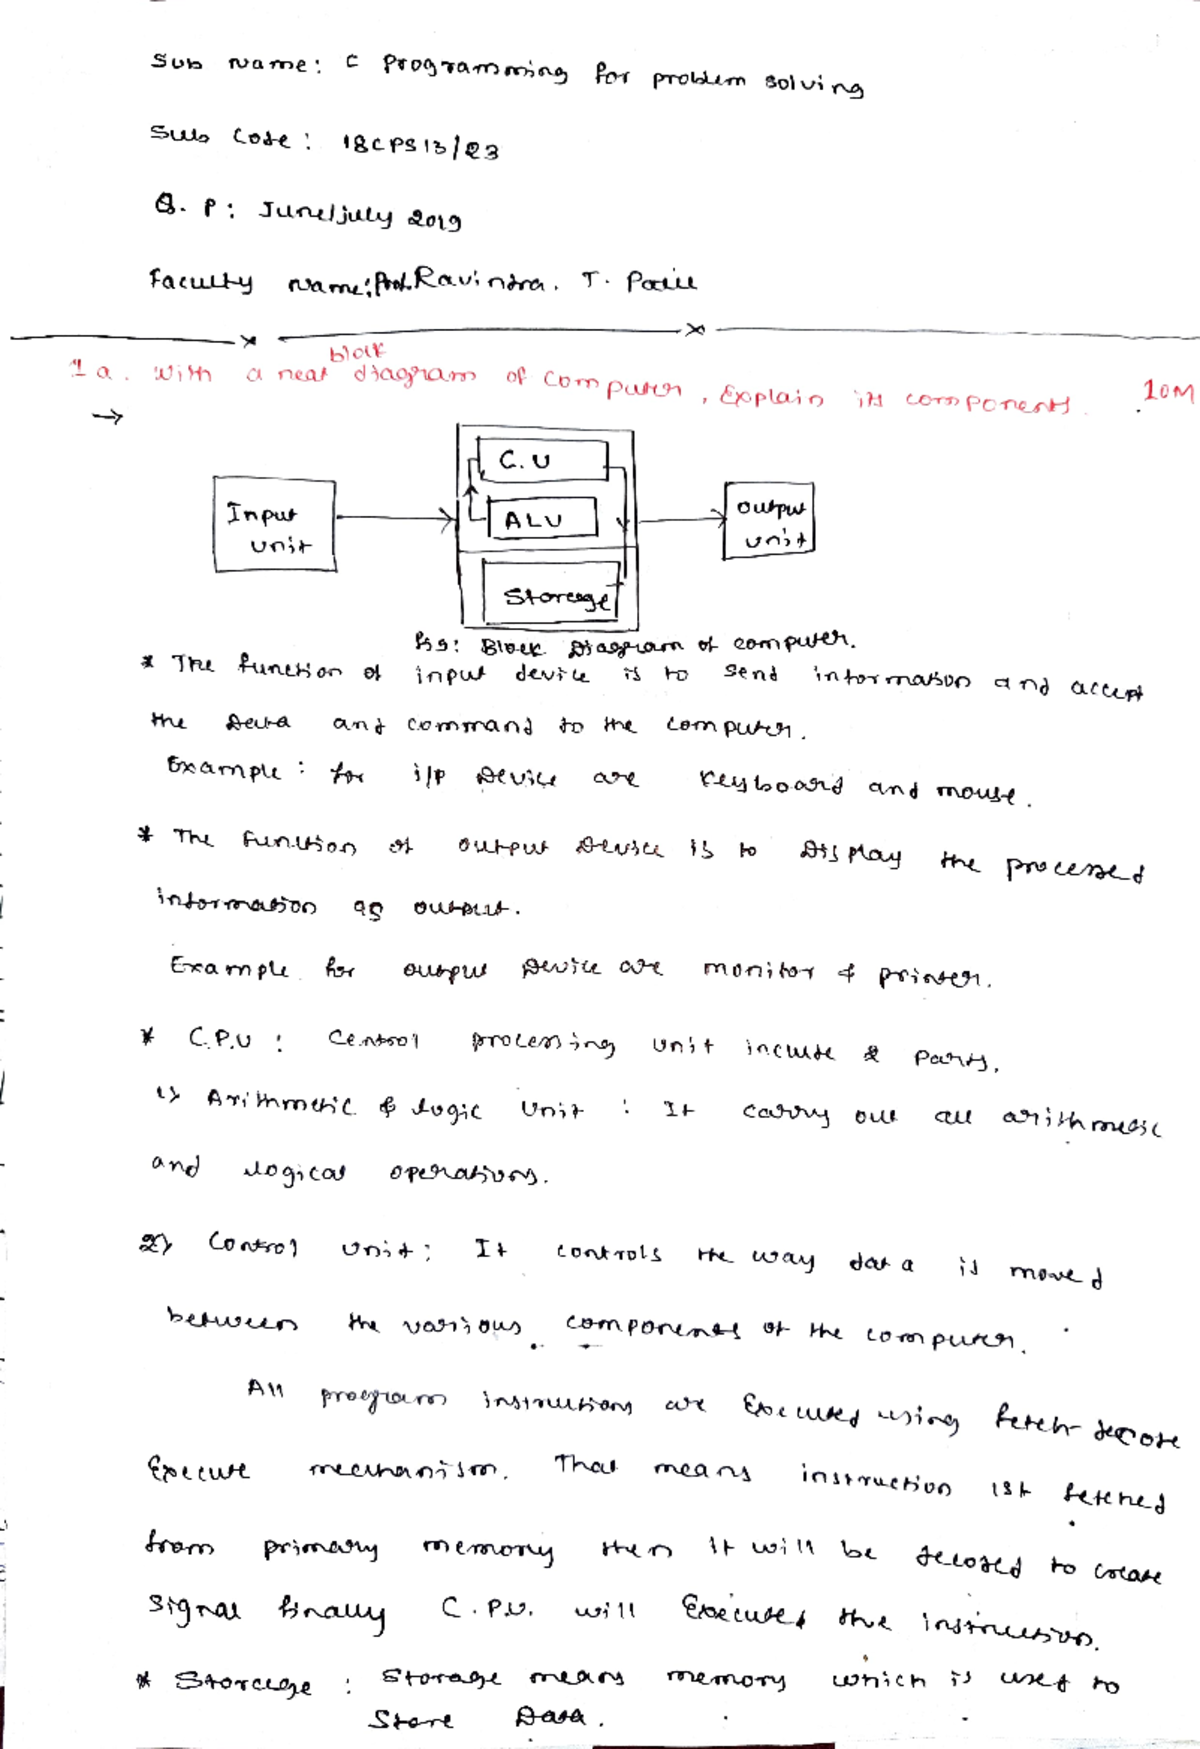 Sub Name: C Programming for problem solving
Sub Code: 18CPS13/23
Q. P: June/july 2019
Faculty Name: Prof. Ravindra. T. Patil
1 a. With a neat block diagram of computer, Explain its components. 10M
C.U
Input unit
ALU
output unit
Storage
Fig: Block Diagram of computer.
* The function of input device is to send information and accept
the Data and command to the computer.
Example: for i/p Device are keyboard and mouse.
* The function of output device is to Display the processed
information as output.
Example for output Device are monitor & printer.
* C.P.U : Central processing unit include 2 parts.
1) Arithmetic & logic unit : It carry out all arithmetic
and logical operations.
2) Control unit: It controls the way data is moved
between the various components of the computer.
All program instructions are Executed using fetch-decode
Execute mechanism. That means instruction 1st fetched
from primary memory then it will be decoded to create
signal finally C.P.U. will Executes the instruction.
* Storage : Storage means memory which is used to
Store Data.